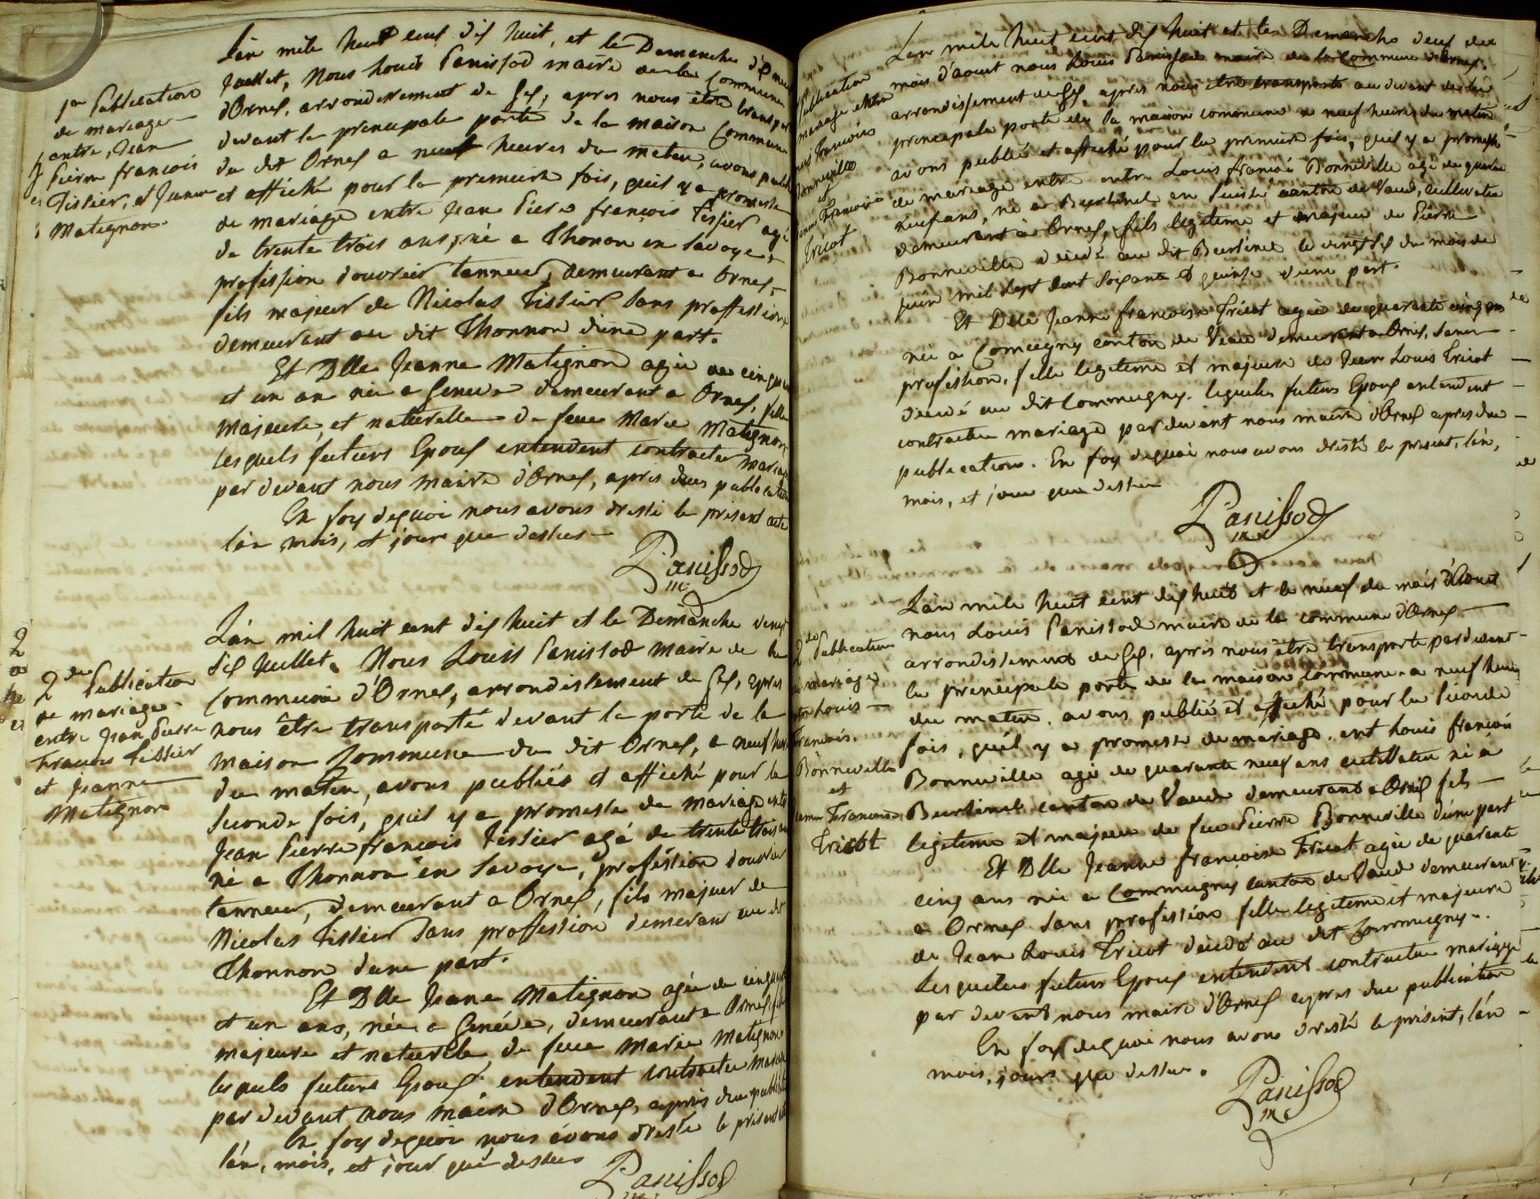 1re Publication
de mariage
entre, Jean
Pierre françois
Tissier, et Jeanne
Matignon
L'an mile huit cent dix huit, et le Demanche
Juillet, Nous Louis Panissod maire de la Commune
d'Ornex, arrondissement de Gex, apres nous être
devant la prencipale porte de la maison Commune
du dit Ornex a neuf heures du maten, avons
et affiché pour la premiere fois, qu'il y a promesse
de mariage entre Jean Pierre françois Tissier agé
de trente trois ans, né a Thonon en Savoye,
profession d'ouvrier tanneur, demeurant a Ornex,
fils majeur de Nicolas Tissier sans proffession
demeurant au dit Thonnon d'une part.
Et Dlle Jeanne Matignon agée de
et un an née a Geneve demeurant a Ornex, fille
majeure, et naturelle de feue Marie Matignon
lesquels futurs Epoux entendent contracter
par devant nous maire d'Ornex, apres dues
En foy dequoi nous avons dressé le présent acte
l'an mois, et jour que dessus
Panissod
me
2de Publication
de mariage
entre Jean Pierre
francois Tissier
et Jeanne
Matignon
L'an mil huit cent dix huit et le Demanche
six Juillet. Nous Louis Panissod maire de la
Commune d'Ornex, arrondissement de Gex, apres
nous être transporté devant la porte de la
maison Commune du dit Ornex, a neuf
du maten, avons publiés et affiché pour la
seconde fois, qu'il y a promesse de mariage
Jean Pierre francois Tissier agé de trente trois
né a Thonnon en Savoye, profession d'ouvrier
tanneur, demeurant a Ornex, fils majeur de
Nicolas Tissier sans proffession demeurant au dit
Thonnon d'une part.
Et Dlle Jeane Matignon agée de
et un ans, née a Genève, demeurant a Ornex,
majeure et naturelle de feue Marie Matignon
lesquels futurs Epoux entendent contracter
par devant nous maire d'Ornex, apres due
En foy dequoi nous avons dressé le présent
l'an, mois, et jour que dessus
Panissod
Publication
mariage entre
françois
Bonneville
et
françoise
Tricot
L'an mile huit cent dix huit et le Demanche deux du
mois d'aout nous Louis Panissod maire de la Commune d'Ornex,
arrondissement de Gex, apres nous être transporté au devant de la
prencipale porte de la maison commune a neuf heures du maten
avons publié et affiché pour la premiere fois, qu'il y a promesse
de mariage entre Louis francois Bonneville agé de quarante
neuf ans, né a Bursinel en Suisse canton de Vaud, cultivateur
demeurant a Ornex, fils legiteme et majeur de Pierre
Bonneville décédé au dit Bursinel le vingt six du mois de
juin mil sept cent soixante et quinze d'une part.
Et Dlle Jeanne francoise Tricot agée de quarante cinq ans
née a Commugny canton de Vaud demeurant a Ornex, sans
profession, fille legiteme et majeure de Jean Louis Tricot
décédé au dit Commugny. lesquels futurs Epoux entendent
contracter mariage par devant nous maire d'Ornex apres due
publication. En foy dequoi nous avons dressé le présent, l'an,
mois, et jour que dessus
Panissod
me
2de Publication
mariage
Louis
francois
Bonneville
et
francoise
Tricot
L'an mile huit cent dix huit et le neuf du mois d'Aout
nous Louis Panissod maire de la commune d'Ornex
arrondissement de Gex, apres nous être transporté par devant
la prencipale porte de la maison Commune a neuf heures
du maten, avons publié et affiché pour la seconde
fois, qu'il y a promesse de mariage, ent Louis francois
Bonneville agé de quarante neuf ans cultivateur né à
Bursinel canton de Vaud demeurant a Ornex fils
legiteme et majeur de feu Pierre Bonneville d'une part
Et Dlle Jeanne françoise Tricot agée de quarante
cinq ans née a Commugny canton de Vaud demeurant
a Ornex sans profession fille legiteme et majeure
de Jean Louis Tricot décédé au dit Commugny.
Lesquels futurs Epoux entendent contracter mariage
par devant nous maire d'Ornex apres due publication
En foy dequoi nous avons dressé le présent, l'an
mois, jour que dessus.
Panissod
me